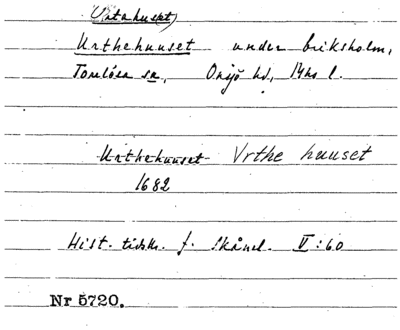 (Urtahuset)
Urthehuuset under Eriksholm,
Torrlösa sn, Onsjö hd, Mhs l.
Urthehuuset Vrthe huuset
1682
Hist. tidskr. f. Skånel. V:60
Nr 5720.